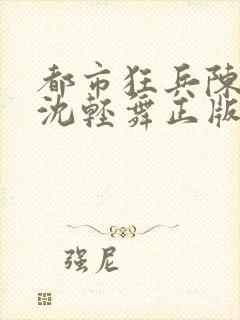 都市狂兵陳
沈輕舞正版
强尼